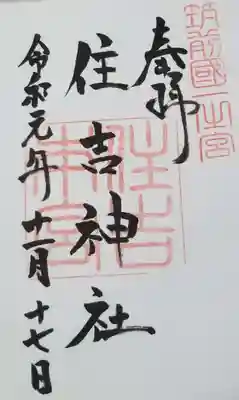 筑前國一之宮
奉拝
住吉神社
住吉
本宮
令和元年十一月十七日